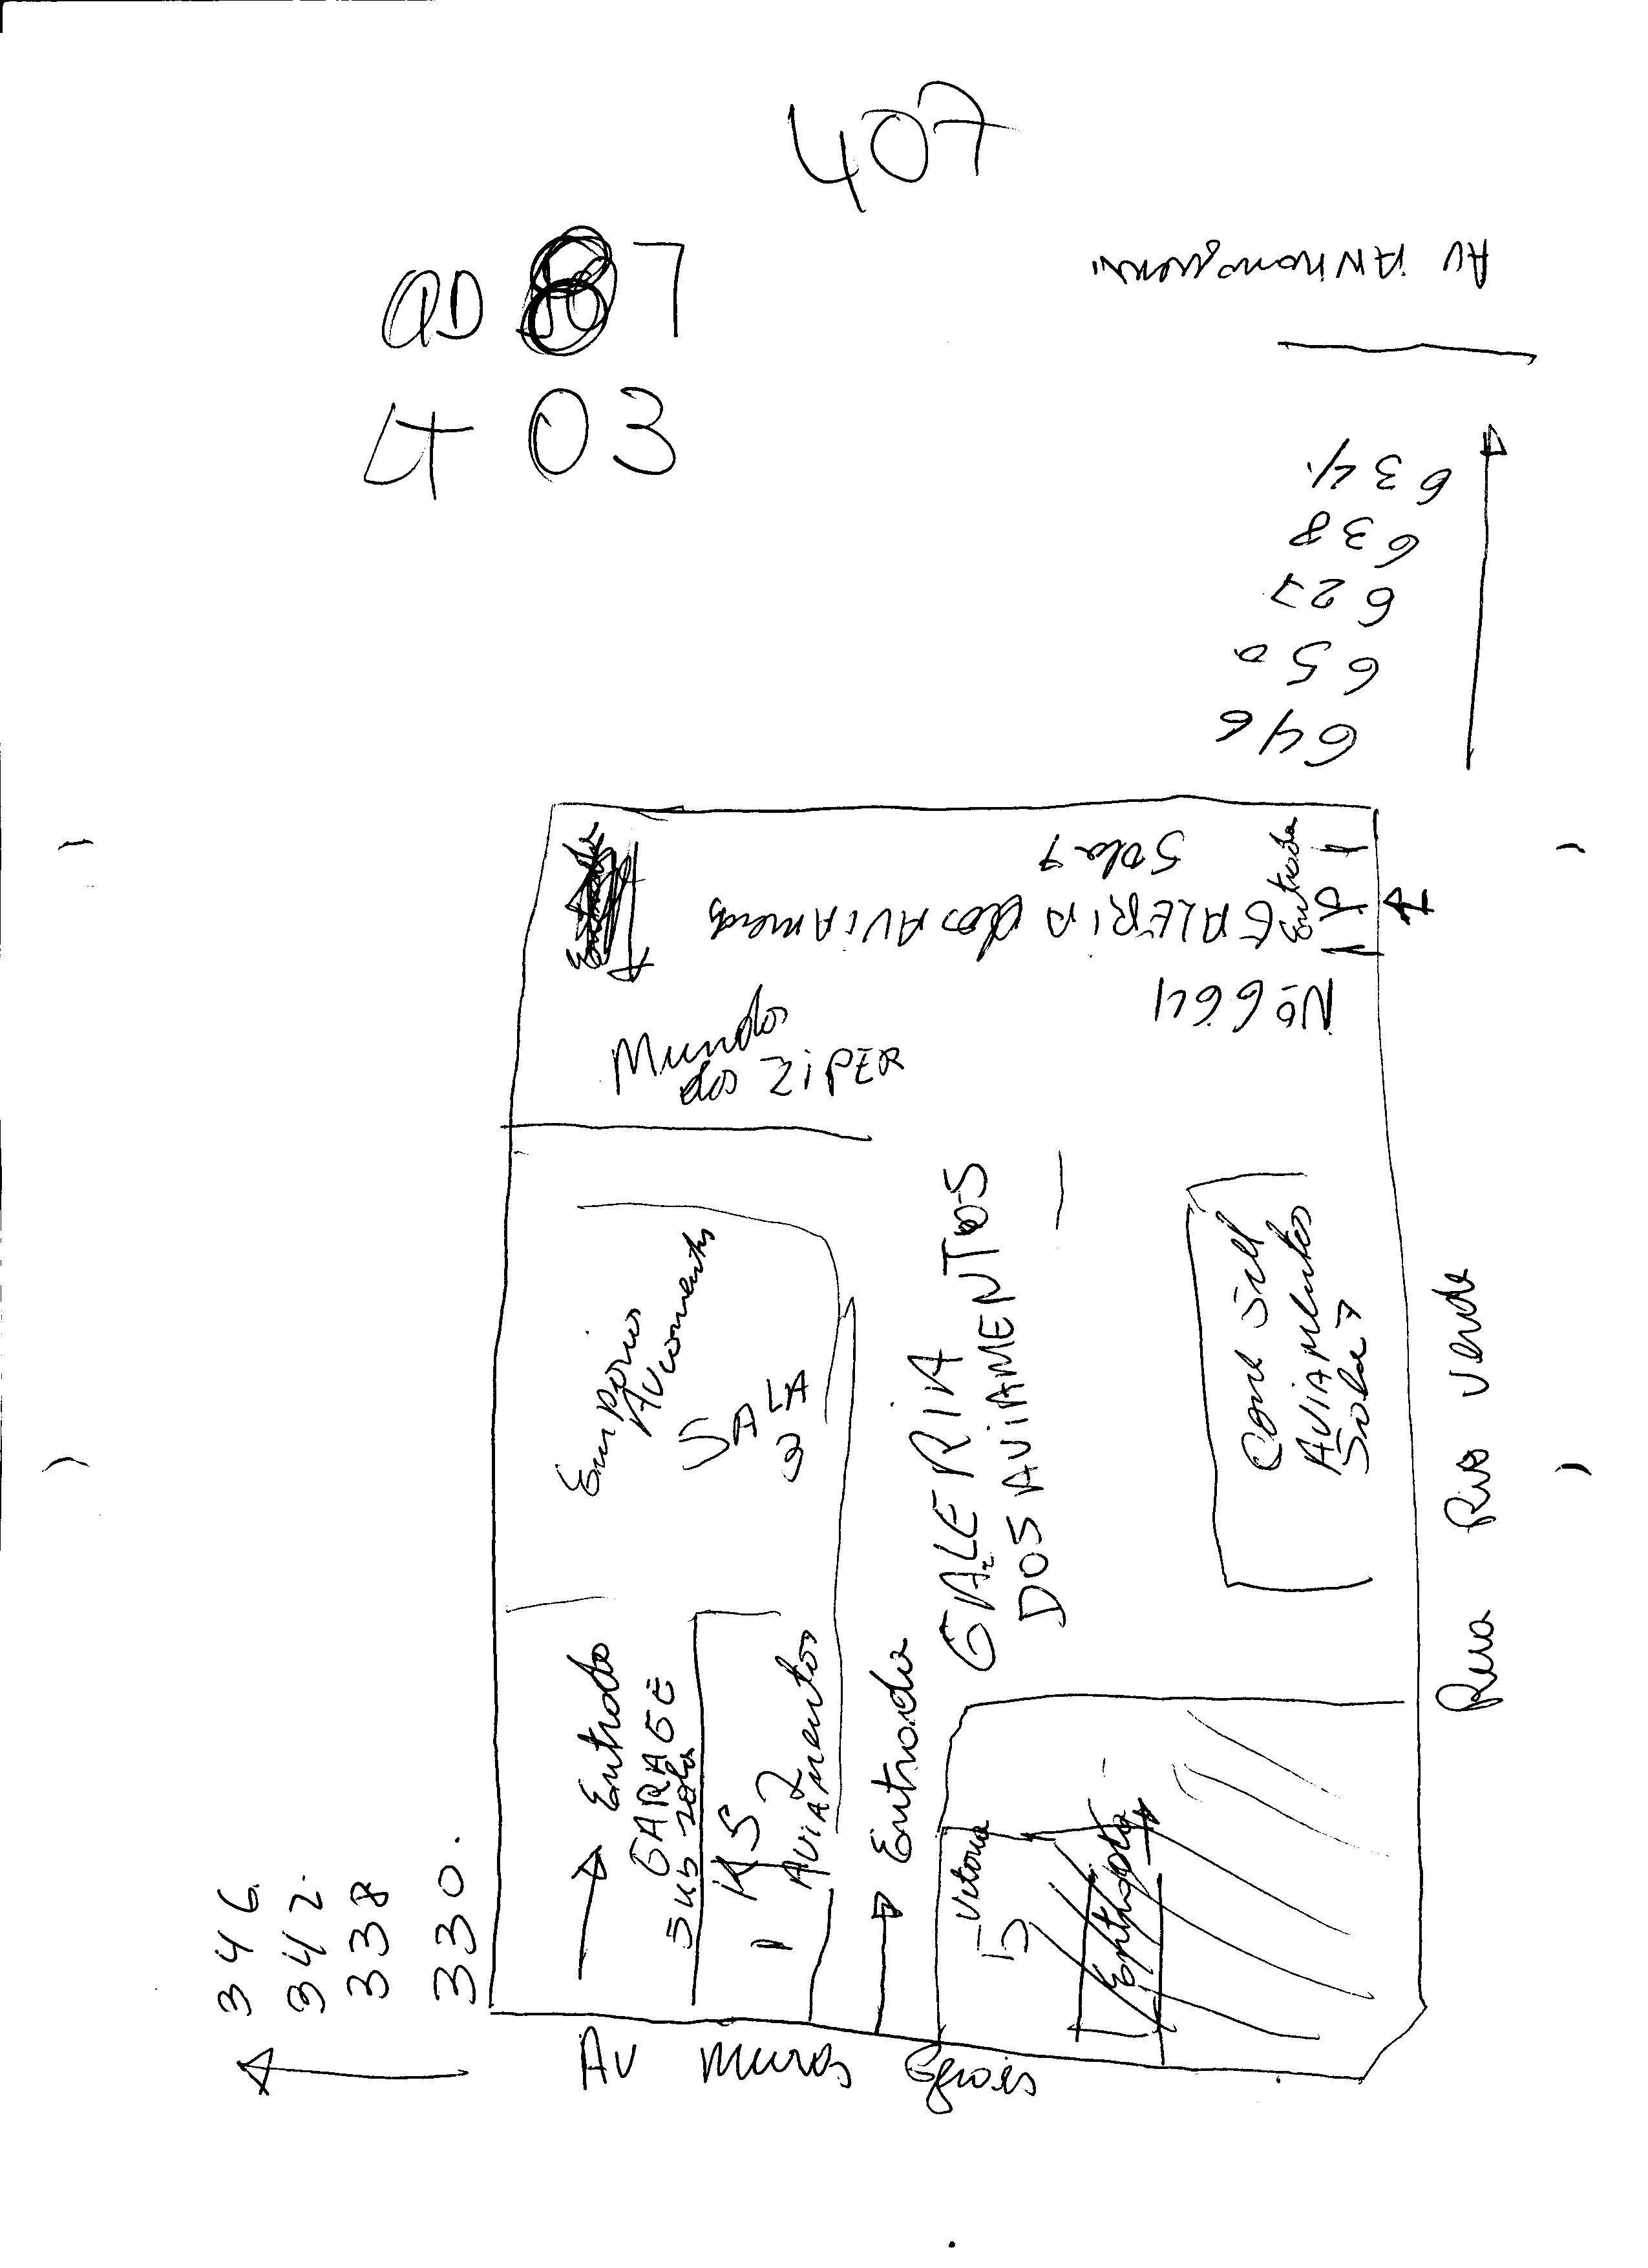 407
QD 7
LT 03
634
638
627
650
646
Entrada
Sala 7
GALERIA dos AViAmentos
Nº 664
Mundos
dos ZiPER
Emporius
Aviamentos
SALA
3
Entrada
GARAGE
Sub solo
KS 2
AviAmentos
1
Entrada
GALERIA
DOS AViAMENTOS
Sala 7
AViAmentos
Vitoria
5
Entrada
Rua Rio Verde
346
342
338
330
Av Muros